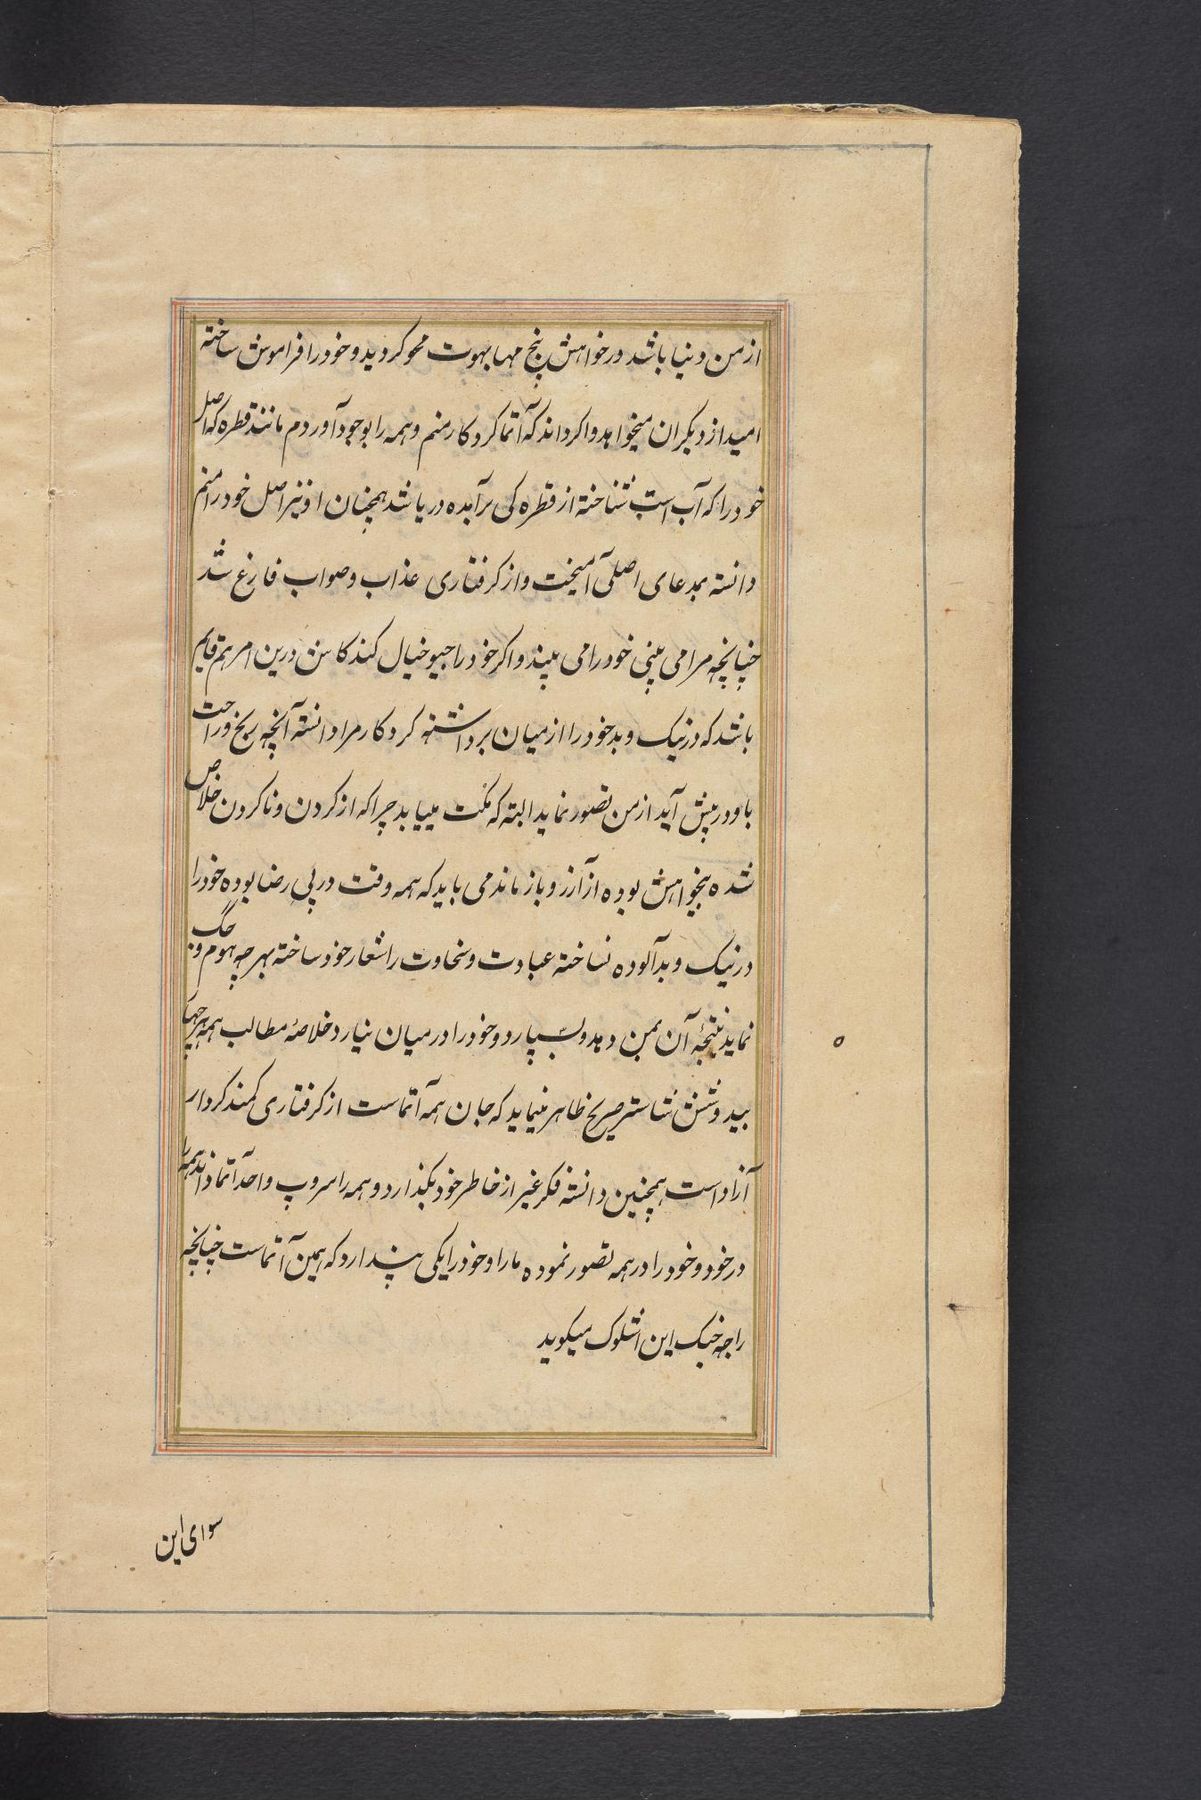 از من دنیا باشد و خواهش پنج مهابهوت محو کردید و خود را فراموش ساخته
امید از دیکران میخواهد و اکر داند که آتما کردکار منم و همه را بوجود آوردم مانند قطره که اصل
خود را که آب است شناخته از قطره کی برآمده دریا شد همچنان او نیز اصل خود را منم
دانسته بمدعای اصلی آمیخت و از کرفتاری عذاب و صواب فارغ شد
چنانچه مرا می بینی خود را می بیند و اکر خود را جیو خیال کند کاش درین امر هم قایم
باشد که در نیک و بد خود را از میان برداشته کردکار مرا دانسته آنچه رنج و راحت
باو در پیش آید از من تصور نماید البته که مکت مییابد چرا که از کردن و ناکردن خلاص
شده بیخواهش بوده از آرزو باز ماند می باید که همه وقت در پی رضا بوده خود را
در نیک و بد آلوده نساخته عبادت و سخاوت را شعار خود ساخته بهر چه هوم و جگ
نماید نتیجۀ آن بمن دهد و بسپارد و خود را در میان نیارد خلاصۀ مطالب همه
بید و شاستر صریح ظاهر مینماید که جان همه آتماست از کرفتاری کمند کردار
آزاد است همچنین دانسته فکر غیر از خاطر خود بکذارد و همه را سروپ واحد آتما داند همه را
در خود و خود را در همه تصور نموده ما را و خود را یکی پندارد که همین آتماست چنانچه
راجه جنک این اشلوک میکوید
سوای این